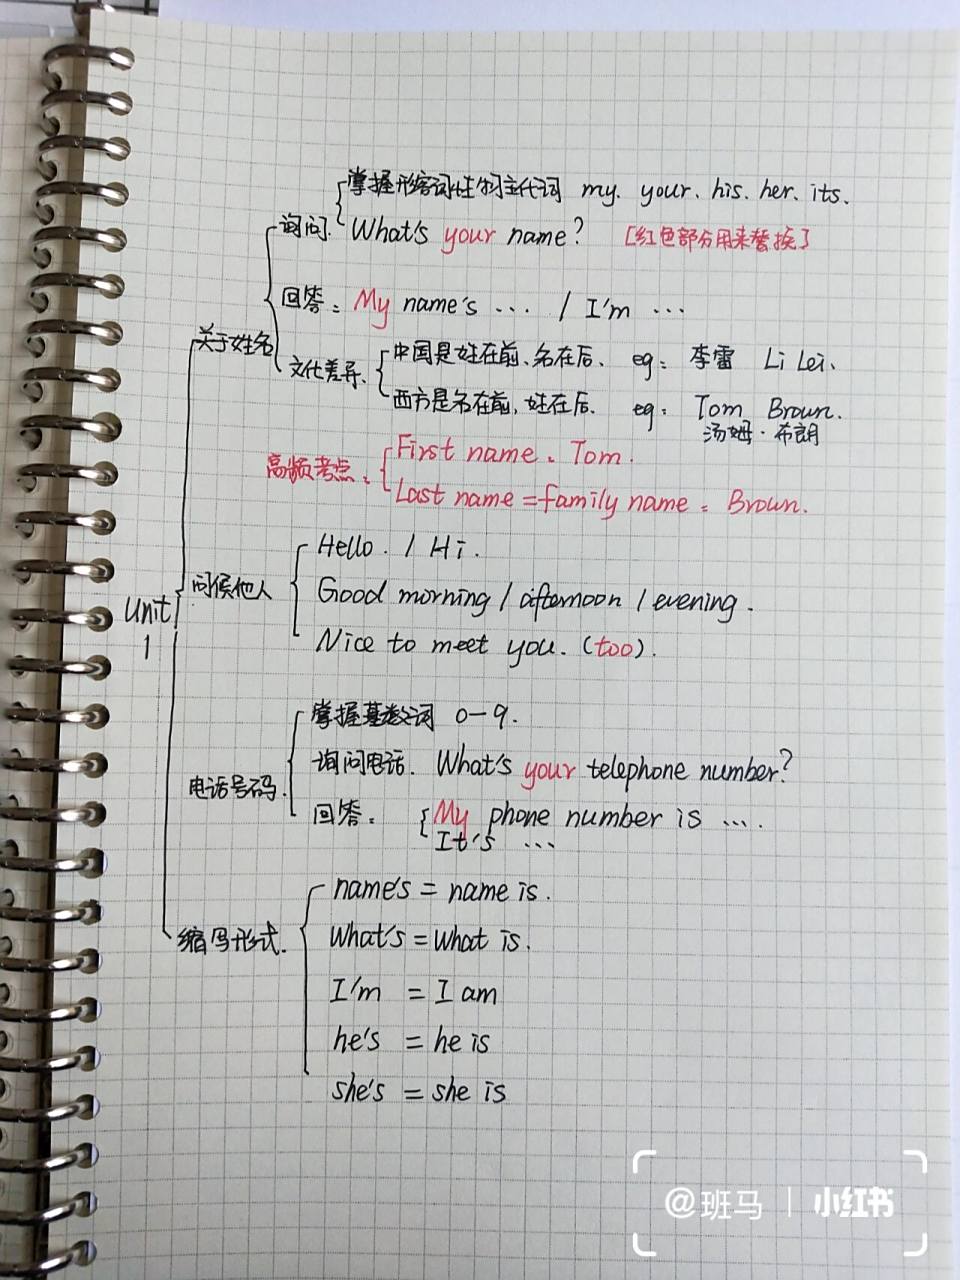 掌握形容词性物主代词 my. your. his. her. its.
询问. What's your name? [红色部分用来替换]
回答: My name's ... / I'm ...
关于姓名
文化差异. 中国是姓在前、名在后. eg: 李雷 Li Lei.
西方是名在前, 姓在后. eg: Tom Brown.
汤姆·布朗
高频考点: First name: Tom.
Last name = family name: Brown.
Hello. / Hi.
问候他人
Good morning / afternoon / evening.
Unit 1
Nice to meet you. (too).
掌握基数词 0-9.
询问电话. What's your telephone number?
电话号码.
回答: My phone number is ....
It's ...
name's = name is.
缩写形式. What's = What is.
I'm = I am
he's = he is
she's = she is
@班马 | 小红书